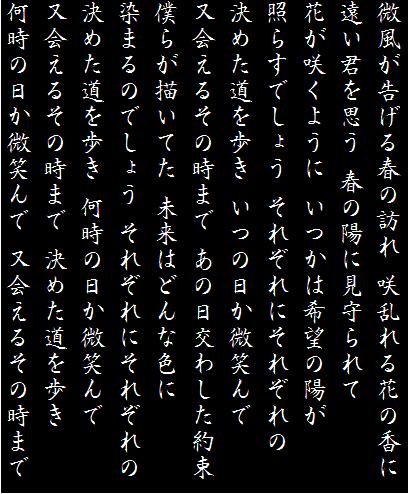 微風が告げる春の訪れ 咲乱れる花の香に
遠い君を思う 春の陽に見守られて
花が咲くように いつかは希望の陽が
照らすでしょう それぞれにそれぞれの
決めた道を歩き いつの日か微笑んで
又会えるその時まで あの日交わした約束
僕らが描いてた 未来はどんな色に
染まるのでしょう それぞれにそれぞれの
決めた道を歩き 何時の日か微笑んで
又会えるその時まで 決めた道を歩き
何時の日か微笑んで 又会えるその時まで